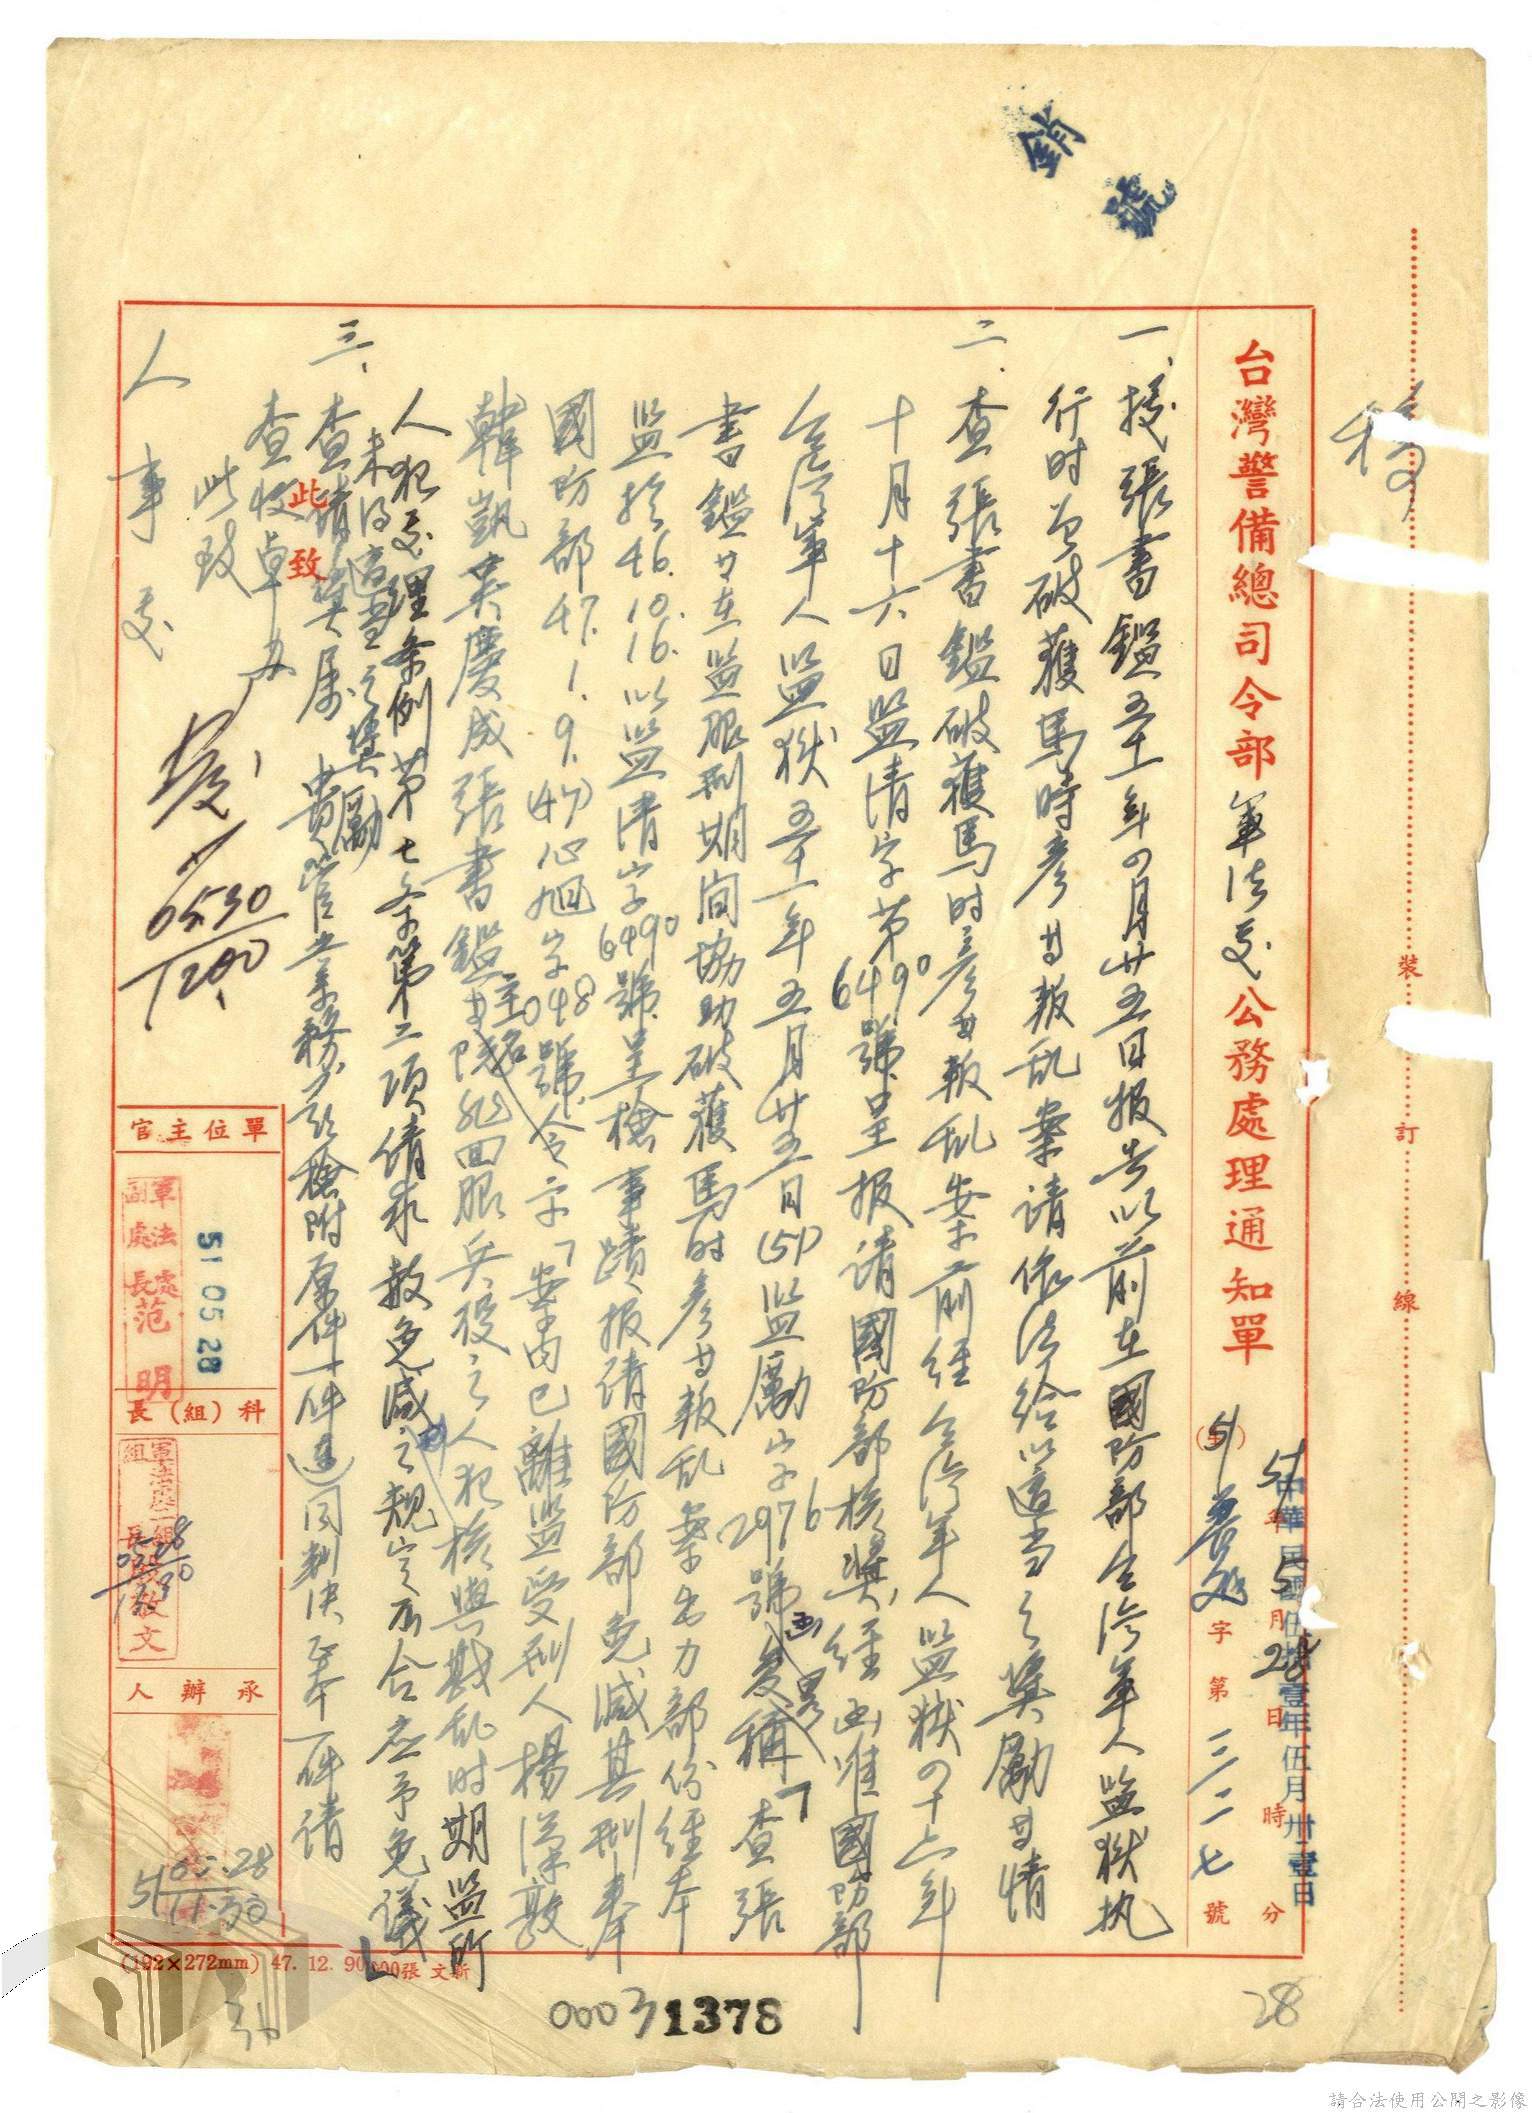 銷號
台灣警備總司令部軍法處公務處理通知單
中華民國伍拾壹年伍月卅壹日
51年5月28日 時 分
(51) 字第三二一七號
一、據張書鑑五十一年四月廿五日報告以前在國防部台灣軍人監獄执
行时曾破獲馬時彥等叛乱案请依法给以適当之獎勵等情
二、查張書鑑破獲馬时彥等叛乱案前经台湾軍人監獄四十六年
十月十六日監清字第6490號呈报请國防部核獎经函准國防部
台湾軍人監獄五十一年五月廿五日(51)監勵字2976號函畧稱「查張
書鑑等在監服刑期间協助破獲馬时彥等叛乱案出力部份经本
監於46.10.16.以監清字6490號呈檢事蹟报请國防部免減其刑奉
國防部47.1.9.(47)心旭字048號令示「案內已離監受刑人楊漢敦
韓凱英慶成張書鑑等 回服兵役之人犯核與戡乱时期監所
人犯处理条例第七条第二項请求赦免減之規定不合应予免議」
未得適当之獎勵
三、查请獎属貴管业务茲檢附原件一件(連同判決正本一件请
查收卓办
此致
此致
人事处
發
05.30
1200
單位主官
軍法處副處長范明
51 05 28
科(組)長
承辦人
51 05.28
11.30
(192×272mm) 47. 12. 90,000張 文新
00031378
28
裝
訂
線
請合法使用公開之影像